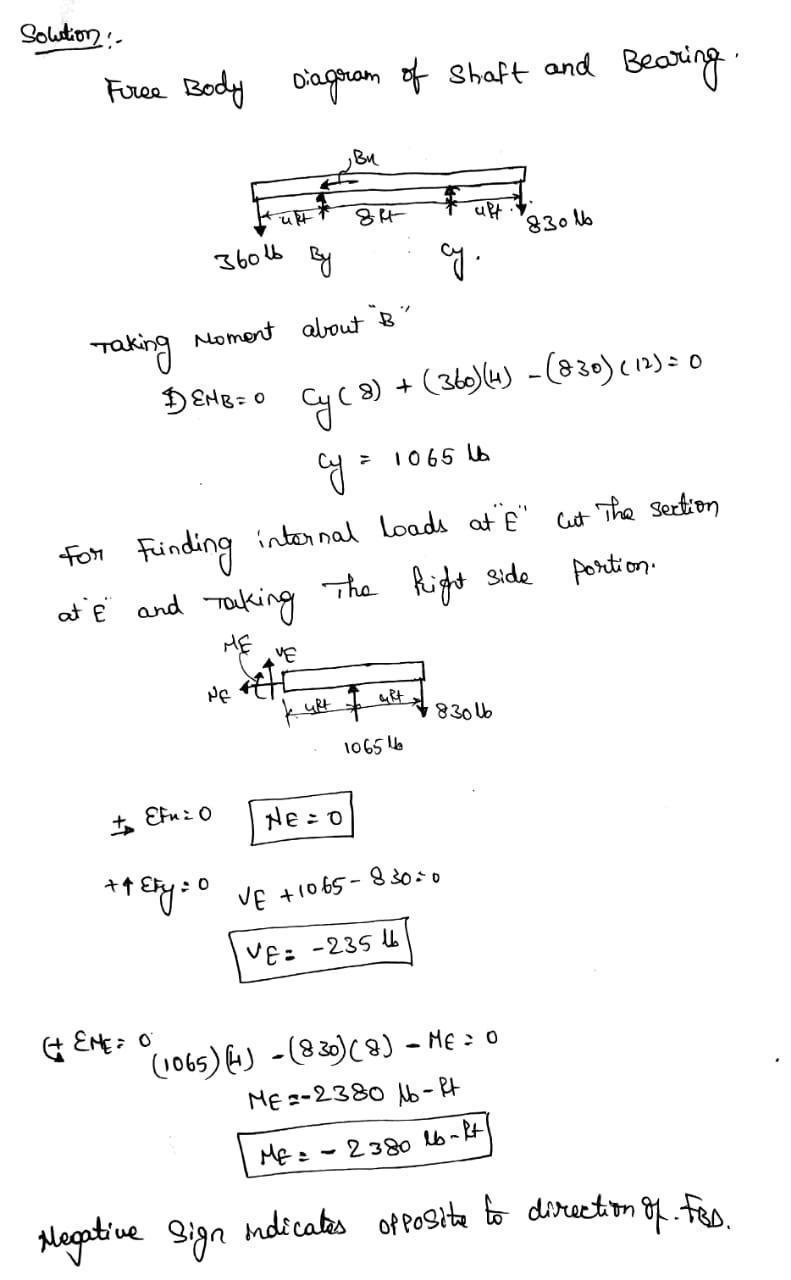 Solution:-
Free Body Diagram of Shaft and Bearing.
Bx
4ft 8ft 4ft
830 lb
360 lb By Cy.
Taking Moment about "B"
ΣMB=0 Cy(8) + (360)(4) - (830)(12) = 0
Cy = 1065 lb
For Finding internal Loads at "E" Cut The Section
at "E" and Taking The Right side portion.
ME VE
NE 4ft 4ft 830 lb
1065 lb
ΣFx=0 NE = 0
+↑ ΣFy=0 VE + 1065 - 830 = 0
VE = -235 lb
ΣME=0 (1065)(4) - (830)(8) - ME = 0
ME = -2380 lb-ft
ME = - 2380 lb-ft
Negative Sign indicates opposite to direction of. FBD.